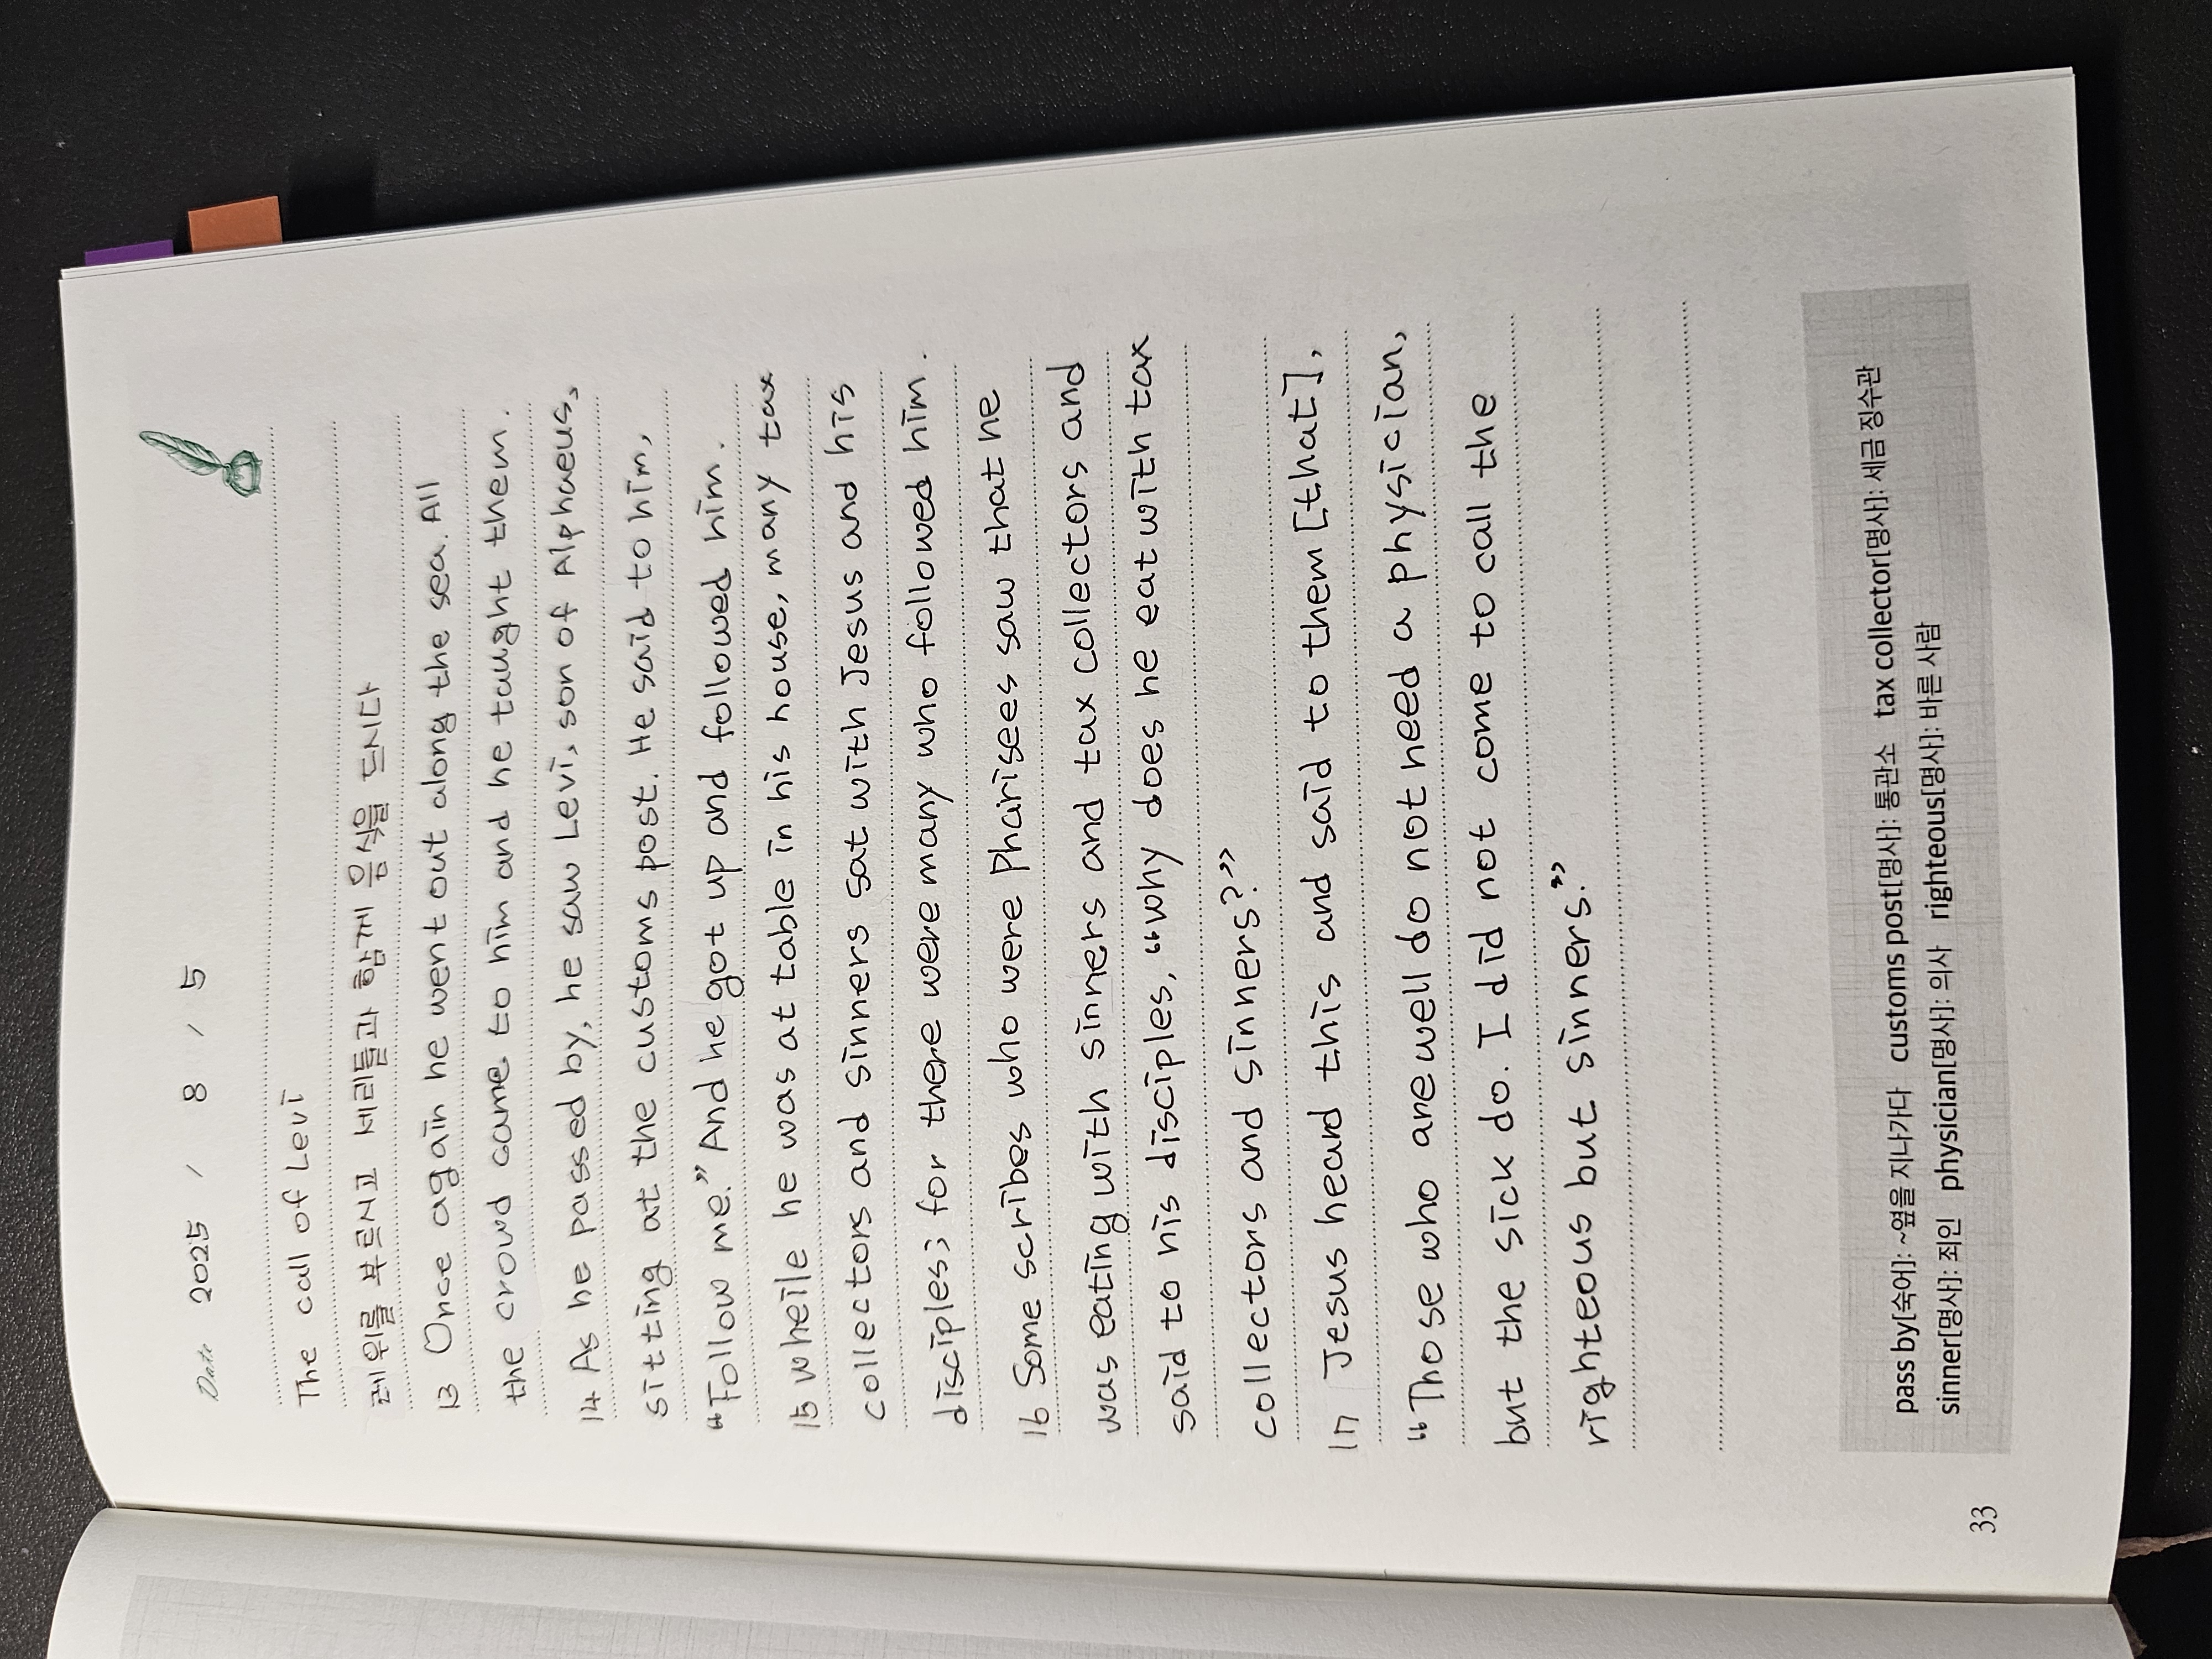 Date 2025 / 8 / 5
The call of Levi
레위를 부르시고 세리들과 함께 음식을 드시다
13 Once again he went out along the sea. All
the crowd came to him and he taught them.
14 As he passed by, he saw Levi, son of Alphaeus,
sitting at the customs post. He said to him,
“Follow me.” And he got up and followed him.
15 Wheile he was at table in his house, many tax
collectors and sinners sat with Jesus and his
disciples; for there were many who followed him.
16 Some scribes who were Pharisees saw that he
was eating with sinners and tax collectors and
said to his disciples, “Why does he eat with tax
collectors and sinners?”
17 Jesus heard this and said to them [that],
“Those who are well do not need a physician,
but the sick do. I did not come to call the
righteous but sinners.”
pass by[숙어]: ~옆을 지나가다 customs post[명사]: 통관소 tax collector[명사]: 세금 징수관
sinner[명사]: 죄인 physician[명사]: 의사 righteous[명사]: 바른 사람
33